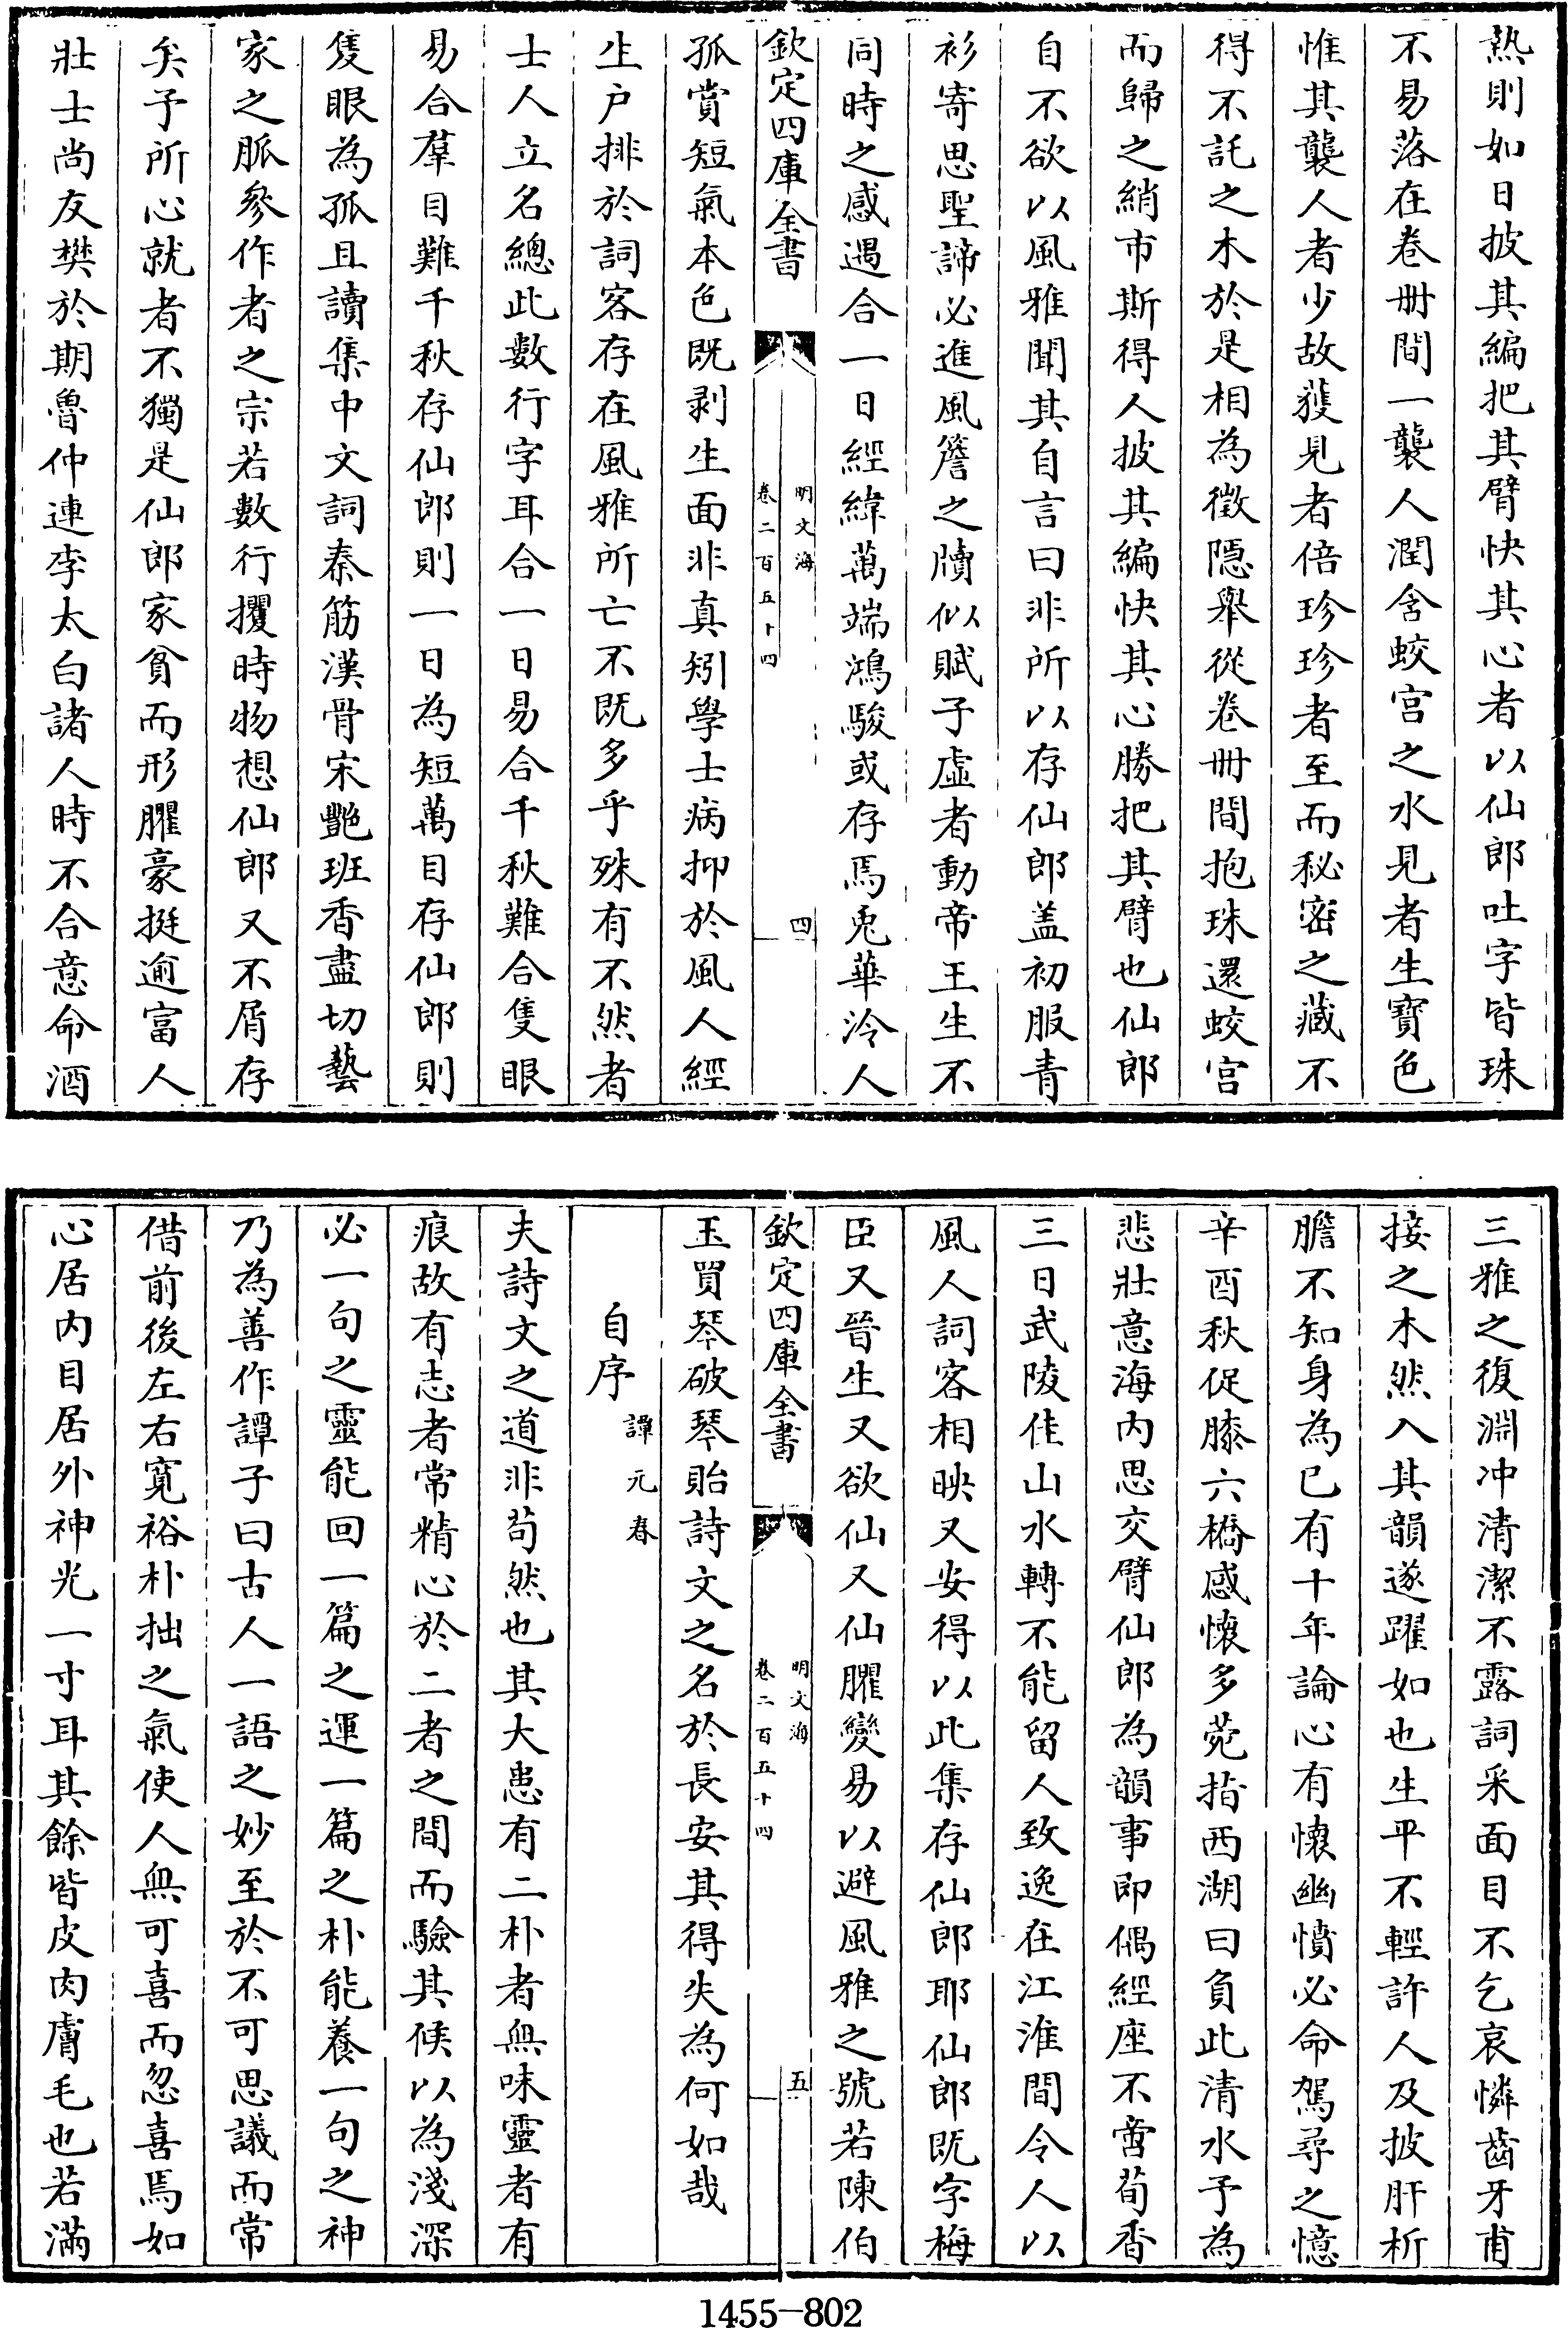 熱則如日披其編把其臂快其心者以仙郎吐字皆珠
不易落在卷冊間一襲人潤含蛟宫之水見者生寳色
惟其襲人者少故獲見者倍珍珍者至而秘宻之藏不
得不託之木於是相為徵隠舉從卷冊間抱珠還蛟宫
而歸之綃市斯得人披其編快其心勝把其臂也仙郎
自不欲以風雅聞其自言曰非所以存仙郎盖初服青
衫寄思聖諦必進風簷之牘似賦子虚者動帝王生不
同時之感遇合一日經緯萬端鴻駿或存焉兎華冷人
欽定四庫全書
明文海
卷二百五十四
四
孤賞短氣本色既剥生面非真矧學士病抑於風人經
生户排於詞客存在風雅所亡不既多乎殊有不然者
士人立名總此數行字耳合一日易合千秋難合隻眼
易合羣目難千秋存仙郎則一日為短萬目存仙郎則
隻眼為孤且讀集中文詞秦筋漢骨宋艷班香盡切藝
家之脈參作者之宗若數行攖時物想仙郎又不屑存
矣予所心就者不獨是仙郎家貧而形臞豪挺逾富人
壯士尚友樊於期魯仲連李太白諸人時不合意命酒
三雅之復淵冲清潔不露詞采面目不乞哀憐齒牙甫
接之木然入其韻遂躍如也生平不輕許人及披肝析
膽不知身為已有十年論心有懐幽憤必命駕尋之憶
辛酉秋促膝六橋感懐多菀指西湖曰負此清水予為
悲壯意海内思交臂仙郎為韻事即偶經座不啻荀香
三日武陵佳山水轉不能留人致逸在江淮間令人以
風人詞客相映又安得以此集存仙郎耶仙郎既字梅
臣又晉生又欲仙又仙臞變易以避風雅之號若陳伯
欽定四庫全書
明文海
卷二百五十四
五
玉買琴破琴貽詩文之名於長安其得失為何如哉
自序
譚元春
夫詩文之道非苟然也其大患有二朴者無味靈者有
痕故有志者常精心於二者之間而驗其候以為淺深
必一句之靈能回一篇之運一篇之朴能養一句之神
乃為善作譚子曰古人一語之妙至於不可思議而常
借前後左右寛裕朴拙之氣使人無可喜而忽喜焉如
心居内目居外神光一寸耳其餘皆皮肉膚毛也若滿
1455－802